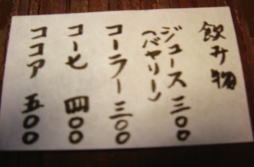 飲み物
ジュース 三〇〇
(バヤリー)
コーラー 三〇〇
コーヒ 四〇〇
ココア 五〇〇